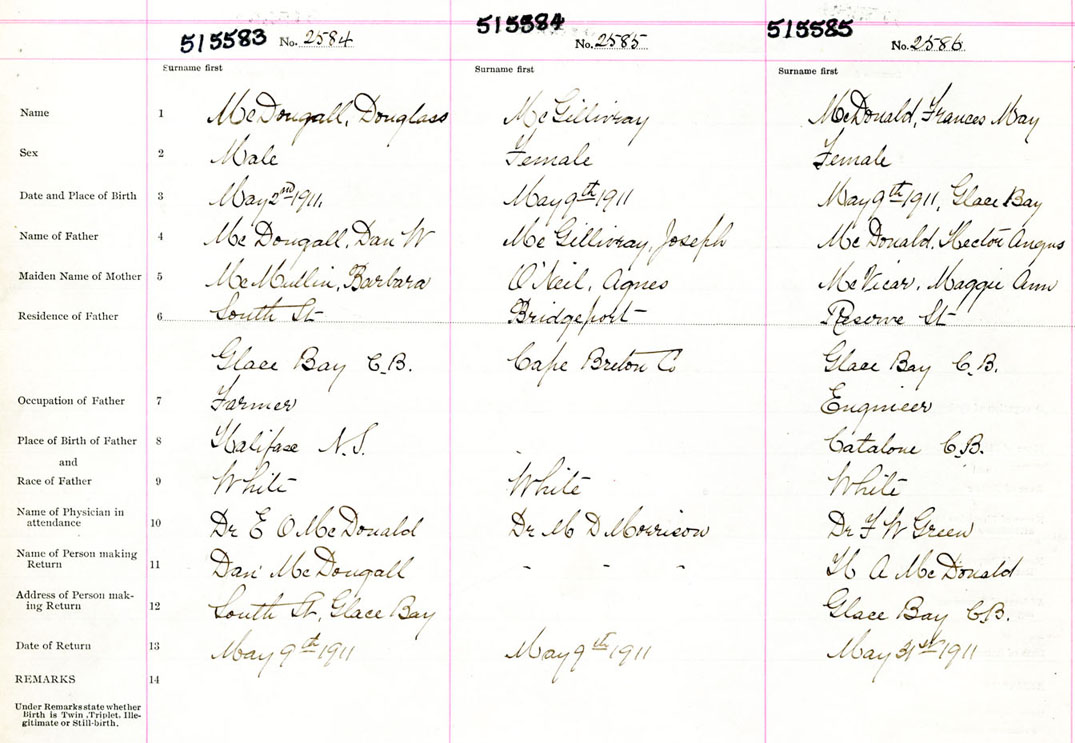 515583 No. 2584 515584 No. 2585 515585 No. 2586
Surname first Surname first Surname first
Name 1 McDougall, Douglass McGillivray McDonald, Frances May
Sex 2 Male Female Female
Date and Place of Birth 3 May 2nd 1911, May 9th 1911 May 9th 1911, Glace Bay
Name of Father 4 McDougall, Dan W McGillivray, Joseph McDonald, Hector Angus
Maiden Name of Mother 5 McMullin, Barbara O'Neil, Agnes McVicar, Maggie Ann
Residence of Father 6 South St Bridgeport Reserve St
Glace Bay C.B. Cape Breton Co Glace Bay C.B.
Occupation of Father 7 Farmer Engineer
Place of Birth of Father 8 Halifax N.S. Catalone C.B.
and
Race of Father 9 White White White
Name of Physician in
attendance 10 Dr E O McDonald Dr M D Morrison Dr F W Green
Name of Person making
Return 11 Dan McDougall - - - H A McDonald
Address of Person mak-
ing Return 12 South St, Glace Bay Glace Bay C.B.
Date of Return 13 May 9th 1911 May 9th 1911 May 31st 1911
REMARKS 14
Under Remarks state whether
Birth is Twin, Triplet, Ille-
gitimate or Still-birth.